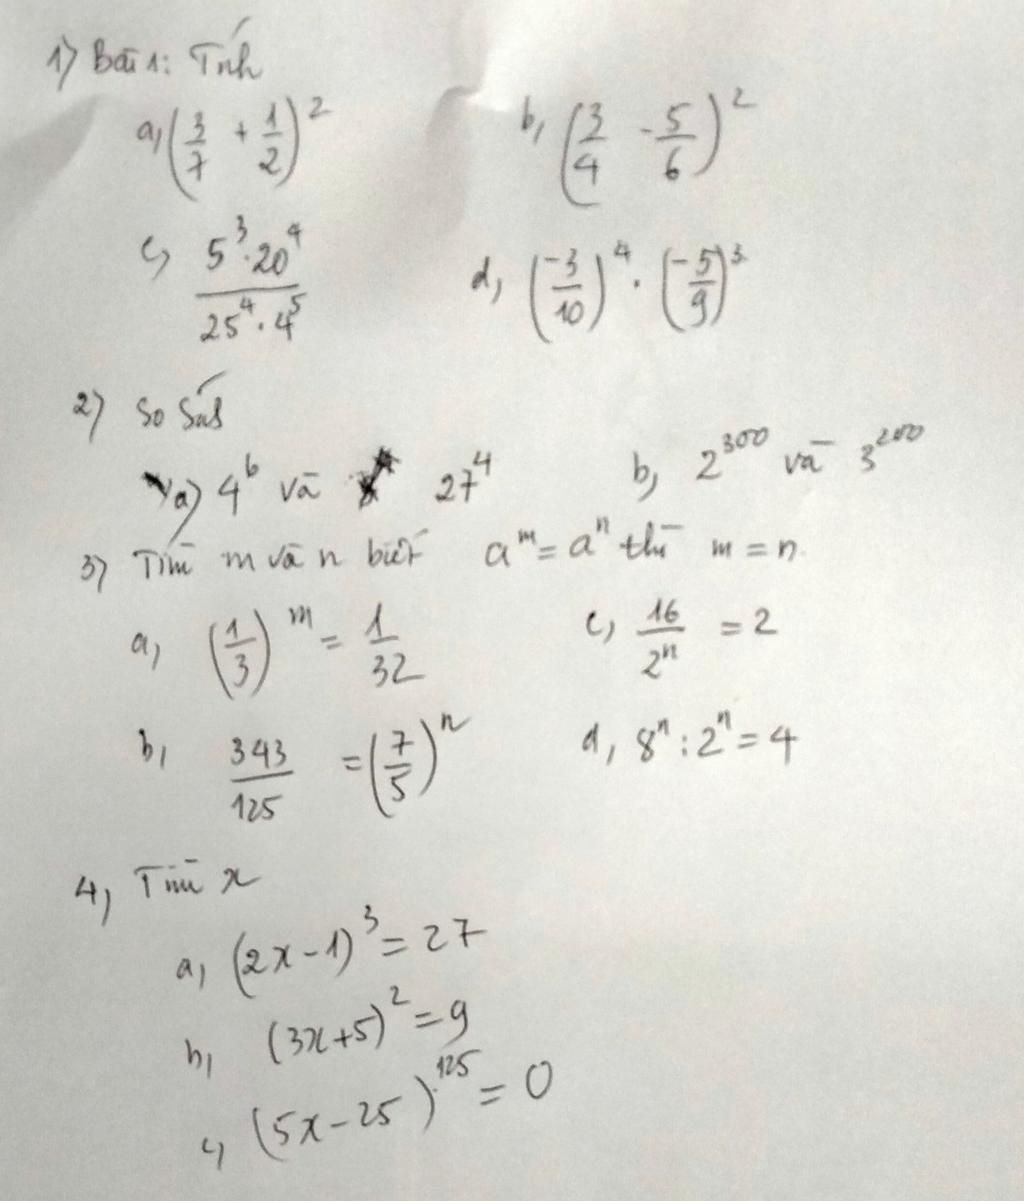 1) Bài 1: Tính
a, (3/7 + 1/2)^2 b, (3/4 - 5/6)^2
c, (5^3 . 20^4)/(25^4 . 4^5) d, (-3/10)^4 . (-5/9)^3
2) So Sáh
a) 4^6 và 27^4 b, 2^300 và 3^200
3) Tìm m và n biết a^m = a^n thì m = n.
a, (1/3)^m = 1/32 c, 16/2^n = 2
b, 343/125 = (7/5)^n d, 8^n : 2^n = 4
4, Tìm x
a, (2x - 1)^3 = 27
b, (3x + 5)^2 = 9
c, (5x - 25)^125 = 0